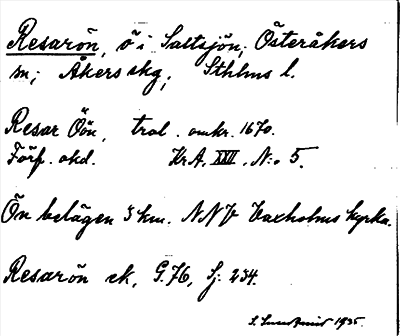 Resarön, ö i Saltsjön, Österåkers
sn; Åkers skg, Sthlms l.
Resar Öön, trol. omkr. 1670.
Förf. okd. KrA. XXVI, N:o 5.
Ön belägen 3 km. NNV Vaxholms kyrka.
Resarön ek, G.76, Sj: 234.
1935.